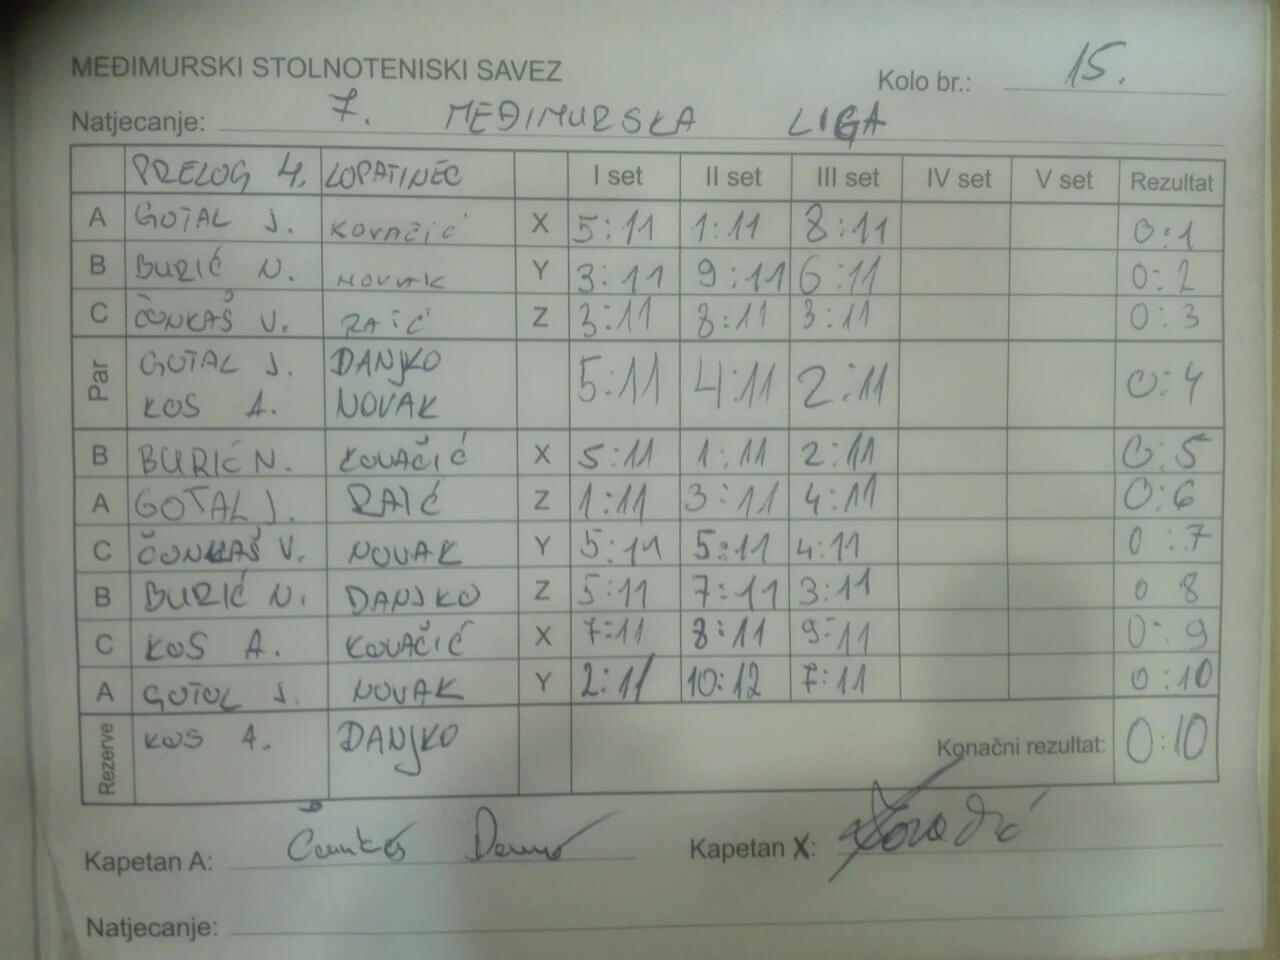 MEĐIMURSKI STOLNOTENISKI SAVEZ
Kolo br.: 15.
Natjecanje: 7. MEĐIMURSKA LIGA
PRELOG 4. LOPATINEC I set II set III set IV set V set Rezultat
A GOTAL J. KOVAČIĆ X 5:11 1:11 8:11 0:1
B BURIĆ N. NOVAK Y 3:11 9:11 6:11 0:2
C ČONKAŠ V. RAIĆ Z 3:11 8:11 3:11 0:3
Par GOTAL J. DANJKO 5:11 4:11 2:11 0:4
KOS A. NOVAK
B BURIĆ N. KOVAČIĆ X 5:11 1:11 2:11 0:5
A GOTAL J. RAIĆ Z 1:11 3:11 4:11 0:6
C ČONKAŠ V. NOVAK Y 5:11 5:11 4:11 0:7
B BURIĆ N. DANJKO Z 5:11 7:11 3:11 0 8
C KOS A. KOVAČIĆ X 7:11 8:11 9:11 0:9
A GOTOL J. NOVAK Y 2:11 10:12 7:11 0:10
Rezerve KOS A. DANJKO Konačni rezultat: 0:10
Kapetan A: Kapetan X:
Natjecanje: